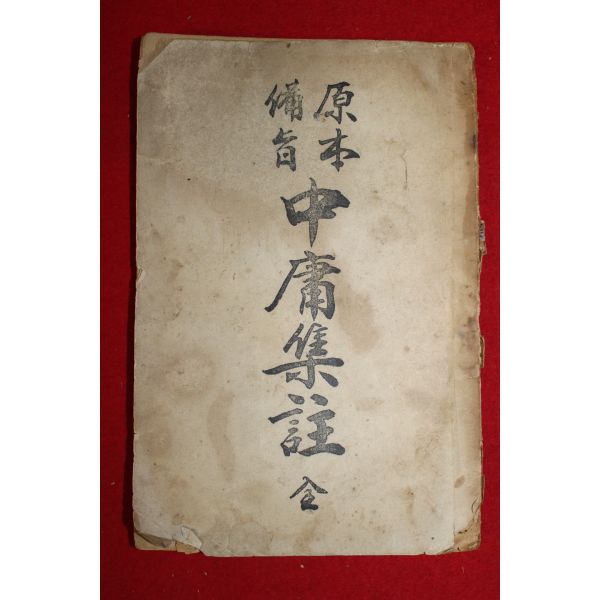 原本
備旨
中庸集註
全